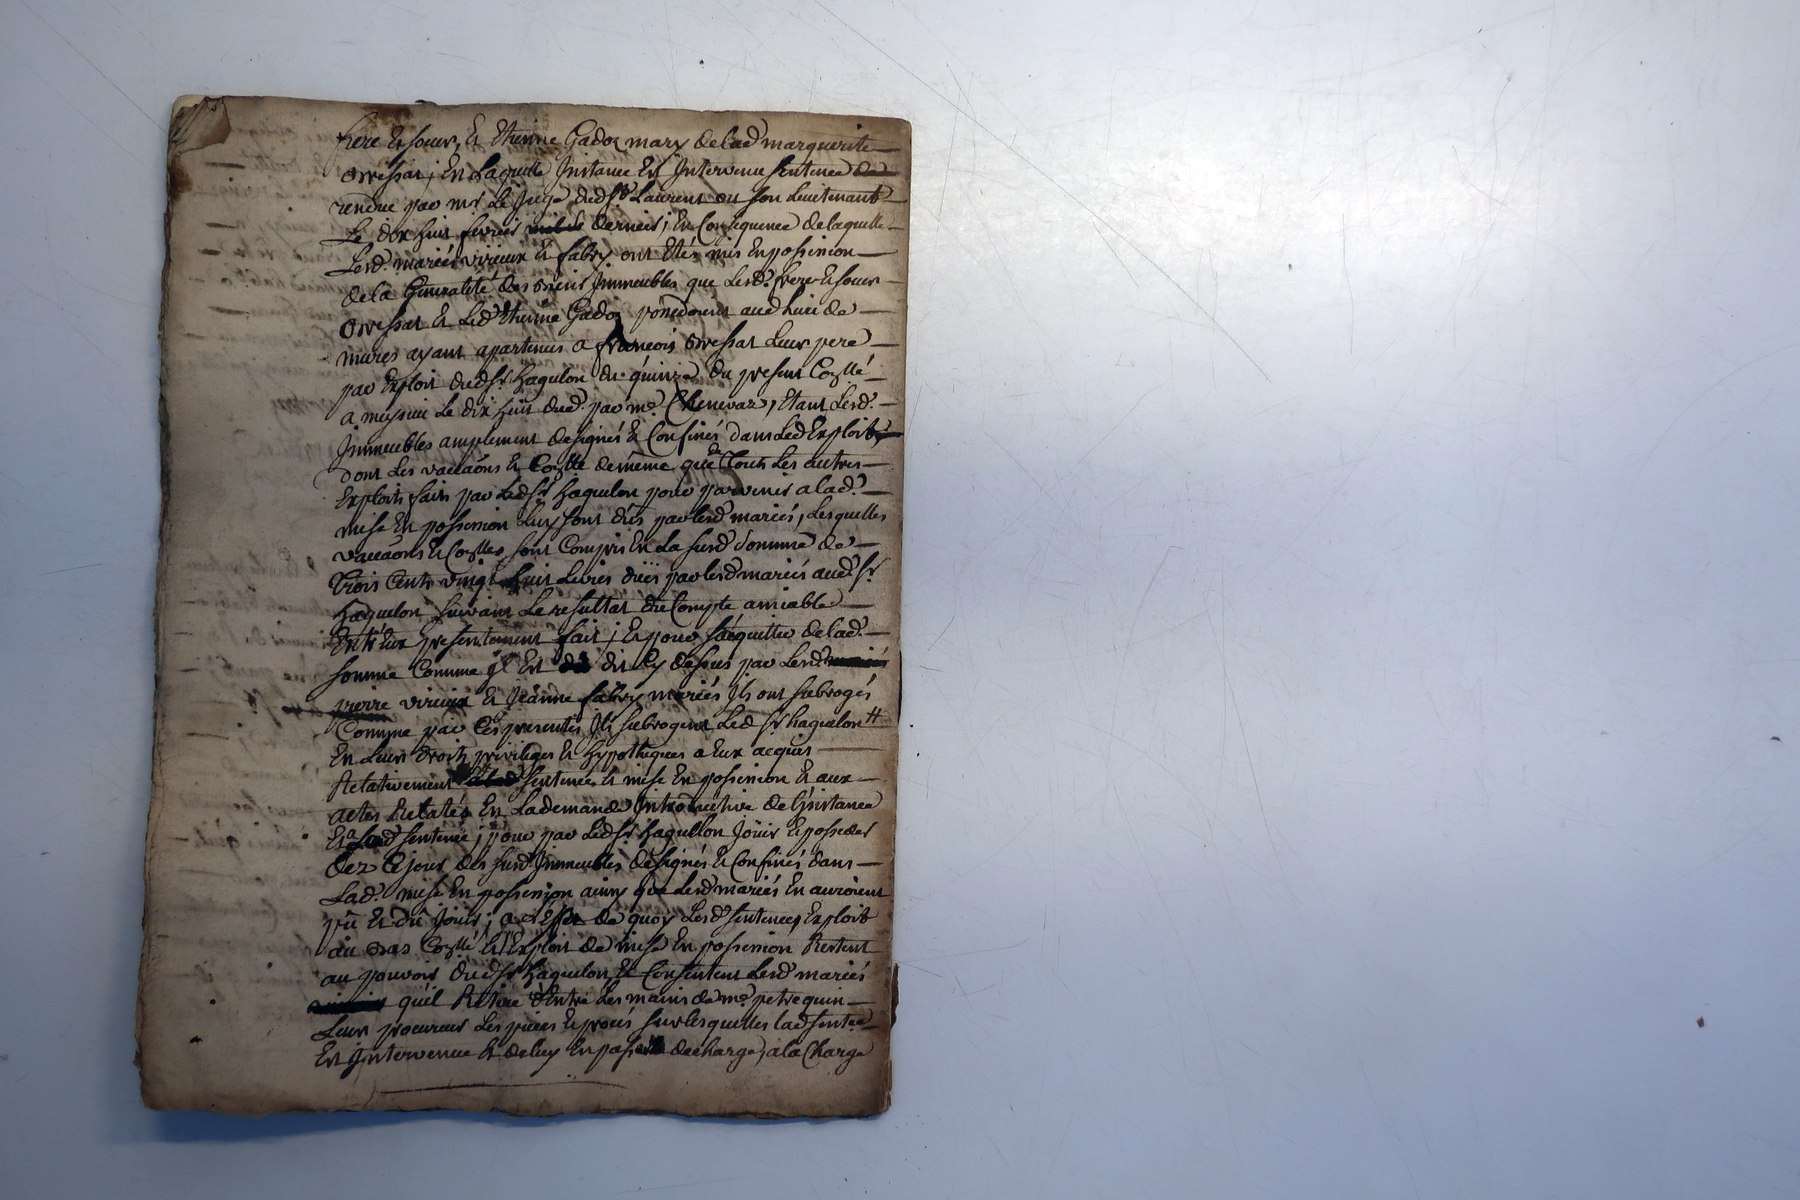 frere & soeur, & Etienne Gadoz mary de lad marguerite
Bressat; En Laquelle Instance Est Intervenue sentence
rendue par mr Le Juge dud St Laurent ou son Lieutenant
Le dix huit fevrier dernier; En Consequence de laquelle
Lesd. mariés virieux & fabry ont Etés mis En possession
de la Generalité des Biens Immeubles que Lesd. frere & soeur
Bressat & Led Etienne Gadoz possedoient aud lieu de
mures ayant apartenus a francois Bressat Leur pere
par Exploit dud sr haguelon du quinze du present Conllé
a meysieu Le dix huit dud. par me Chenevaz, Etant Lesd.
Immeubles amplement designés & Confinés dans Led Exploit
dont Les vaccaons & Conlle de même que de Touts Les autres
Exploits faits par Led sr haguelon pour parvenir a lad.
mise En possession Luy sont dûs par lesd mariés, Lesquelles
vaccaons & Conlles sont Compris En La susd somme de
Trois Cents vingt huit Livres düe par lesd mariés aud sr
haguelon suivant Le resultat du Compte amiable
Entr'Eux presentement fait; Et pour s'acquitter de lad.
somme Comme jl Est dit Cy dessus par Lesd
pierre virieux & Jeanne fabry mariés Ils ont subrogés
Comme par Ces presentes Ils subrogent Led sr haguelon
En Leurs droits privileges & hypotheques a Eux acquis
Relativement a lad sentence & mise En possession & aux
actes Relatés En La demande Introductive de L'Instance
Et a lad sentence; pour par Led sr haguelon Joüir & posseder
dez Ce jour des susd Immeubles designés & Confinés dans
Lad. mise En possession ainsy que Lesd mariés En auroient
pû Et dû Joüir; a L'Effet de quoy Lesd sentence, Exploit
au Bas Conllé & L'Exploit de mise En possession Restent
au pouvoir dud sr haguelon, Et Consentent Lesd mariés
qu'il Retire d'Entre Les mains de me petrequin
Leur procureur Les pieces & procés sur lesquelles lad sentce
Est Intervenue Et de luy En passer decharge, a la Charge